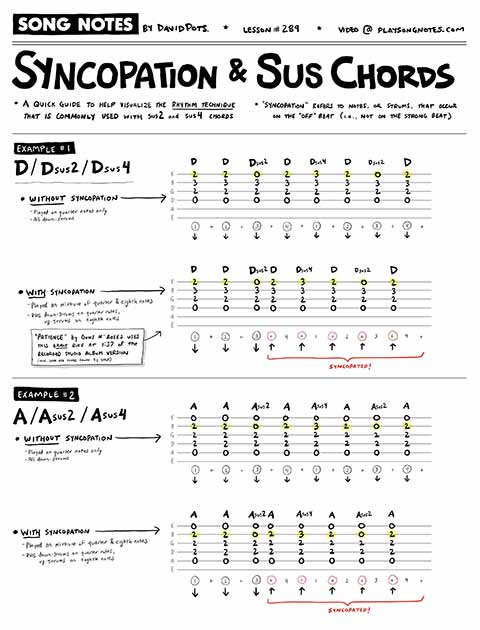 SONG NOTES BY DAVID POTS. * LESSON # 289 * VIDEO @ PLAYSONGNOTES.COM
SYNCOPATION & SUS CHORDS
• A QUICK GUIDE TO HELP VISUALIZE THE RHYTHM TECHNIQUE
THAT IS COMMONLY USED WITH SUS2 AND SUS4 CHORDS
• "SYNCOPATION" REFERS TO NOTES, OR STRUMS, THAT OCCUR
ON THE "OFF" BEAT (I.E., NOT ON THE STRONG BEAT)
EXAMPLE #1
D/DSUS2/DSUS4
• WITHOUT SYNCOPATION
- Played on quarter notes only
- All down-strums
D D DSUS2 D DSUS4 D DSUS2 D
E 2 2 0 2 3 2 0 2
B 3 3 3 3 3 3 3 3
G 2 2 2 2 2 2 2 2
D 0 0 0 0 0 0 0 0
A
E
1 + 2 + 3 + 4 + 1 + 2 + 3 + 4 +
• WITH SYNCOPATION
- Played on mixture of quarter & eighth notes
- Uses down-strums on quarter notes,
up-strums on eighth notes
"PATIENCE" by GUNS N' ROSES USES
THIS EXACT RIFF AT 1:37 OF THE
RECORDED STUDIO ALBUM VERSION
D D DSUS2 D DSUS4 D DSUS2 D
E 2 2 0 2 3 2 0 2
B 3 3 3 3 3 3 3 3
G 2 2 2 2 2 2 2 2
D 0 0 0 0 0 0 0 0
A
E
1 + 2 + 3 + 4 + 1 + 2 + 3 + 4 +
SYNCOPATED!
EXAMPLE #2
A/ASUS2/ASUS4
• WITHOUT SYNCOPATION
- Played on quarter notes only
- All down-strums
A A ASUS2 A ASUS4 A ASUS2 A
E 0 0 0 0 0 0 0 0
B 2 2 0 2 3 2 0 2
G 2 2 2 2 2 2 2 2
D 2 2 2 2 2 2 2 2
A 0 0 0 0 0 0 0 0
E
1 + 2 + 3 + 4 + 1 + 2 + 3 + 4 +
• WITH SYNCOPATION
- Played on mixture of quarter & eighth notes
- Uses down-strums on quarter notes,
up-strums on eighth notes
A A ASUS2 A ASUS4 A ASUS2 A
E 0 0 0 0 0 0 0 0
B 2 2 0 2 3 2 0 2
G 2 2 2 2 2 2 2 2
D 2 2 2 2 2 2 2 2
A 0 0 0 0 0 0 0 0
E
1 + 2 + 3 + 4 + 1 + 2 + 3 + 4 +
SYNCOPATED!